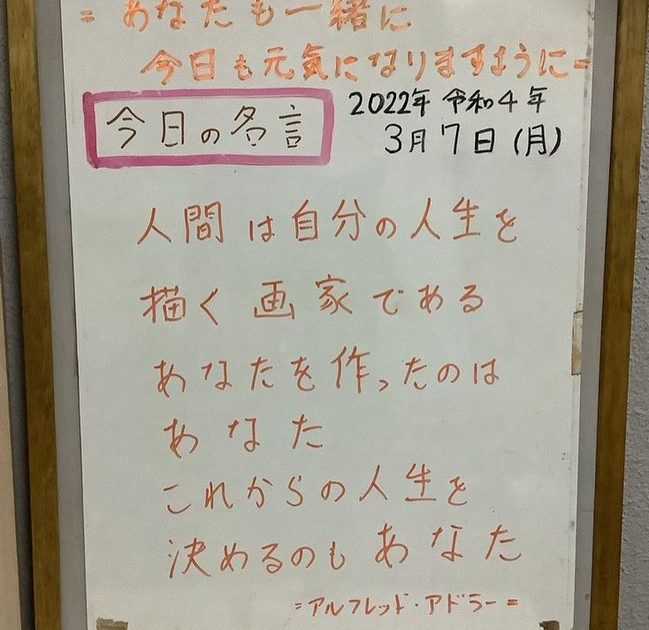 = あなたも一緒に
今日も元気になりますように=
今日の名言
2022年 令和4年
3月7日(月)
人間は自分の人生を
描く画家である
あなたを作ったのは
あなた
これからの人生を
決めるのもあなた
=アルフレッド・アドラー=